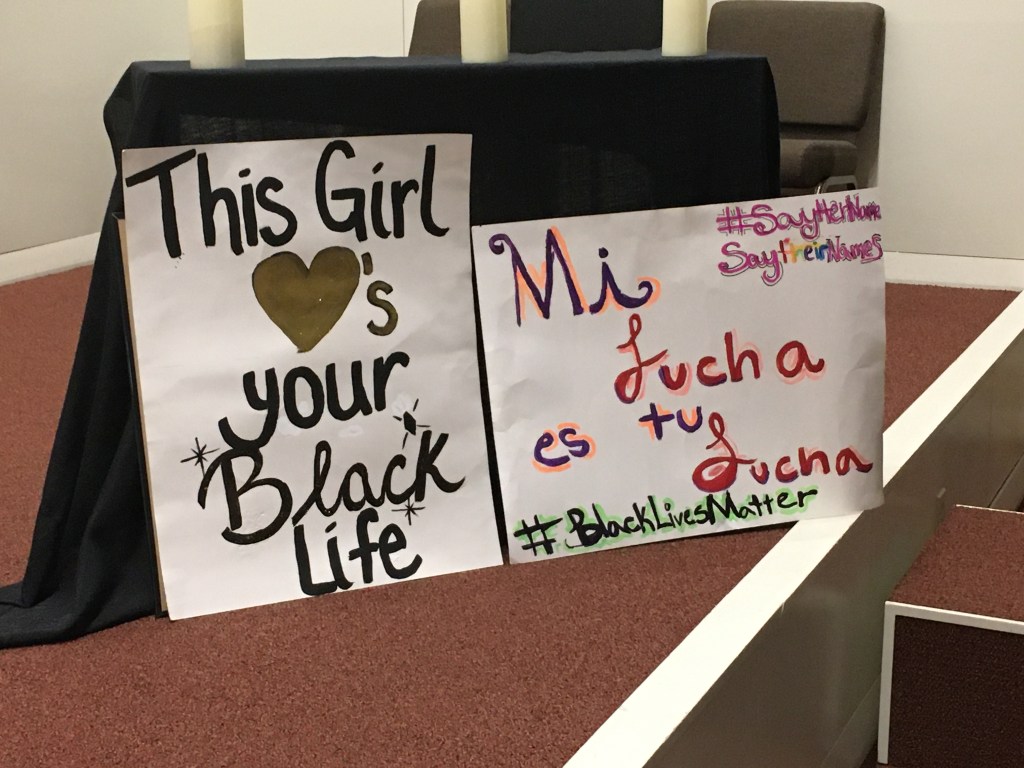 This Girl
♥'s
your
Black
Life
#SayHerName
SayTheirNames
Mi
Lucha
es tu
Lucha
#BlackLivesMatter